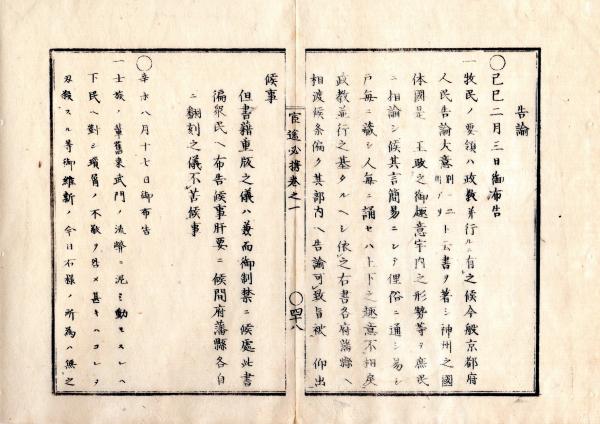 告諭
〇己巳二月三日御布告
一牧民ノ要領ハ政教並行ルニ有之候今般京都府
人民告諭大意ト云書ヲ著シ神州之國
体國是 王政之御趣意宇内之形勢等ヲ庶民
ニ相諭シ候其言簡易ニシテ俚俗ニ通シ易シ
戸毎ニ藏シ人毎ニ誦セハ上下之趣意不相戻
政教並行之基タルヘシ依之右書各府藩縣ヘ
相渡候条偏ク其部内ヘ告諭可致旨被 仰出
候事
但書籍重版之儀ハ兼而御制禁ニ候處此書
徧衆民ヘ布告候事肝要ニ候間府藩縣各自
ニ翻刻之儀不苦候事
〇辛未八月十七日御布告
一士族ノ輩舊来武門ノ流弊ニ泥ミ動モスレハ
下民ヘ對シ瑣屑ノ不敬ヲ咎メ甚キハコレヲ
刄殺スル等御維新ノ今日右様ノ所為ハ無之
官途必携巻之一
〇四十八